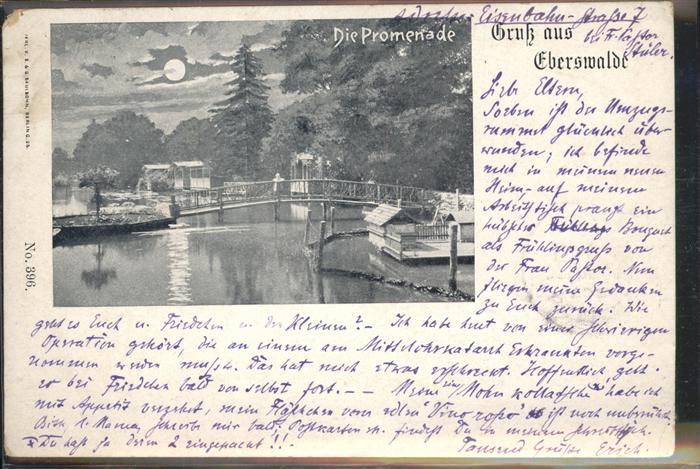 Adresse: Eisenbahn-straße 7
bei Fr. Pastor
Stüler.
Die Promenade
Gruß aus
Eberswalde
No. 396.
Liebe Eltern,
Soeben ist der Umzugs-
rummel glücklich über-
wunden; ich befinde
mich in meinem neuen
Heim - auf meinem
Arbeitstisch prangt ein
hübsches Bouquet
als Frühlingsgruß von
der Frau Pastor. Nun
fliegen meine Gedanken
zu Euch zurück! Wie
geht es Euch u. Friedchen u. der Kleinen? - Ich habe heut von einer schwierigen
Operation gehört, die an einem am Mittelohrkatarrh Erkrankten vorge-
nommen werden mußte. Das hat mich etwas erschreckt. Hoffentlich geht
es bei Friedchen bald von selbst fort. - - Meine Mohn habe ich
mit Appetit verzehrt, mein Fläschchen vom edlen Vino ist noch unberührt.
Bitte, l. Mama, schreibe mir bald. Postkarten findest Du in meinem
Du hast ja deren 2 eingepackt!!
Tausend Grüße Erich.